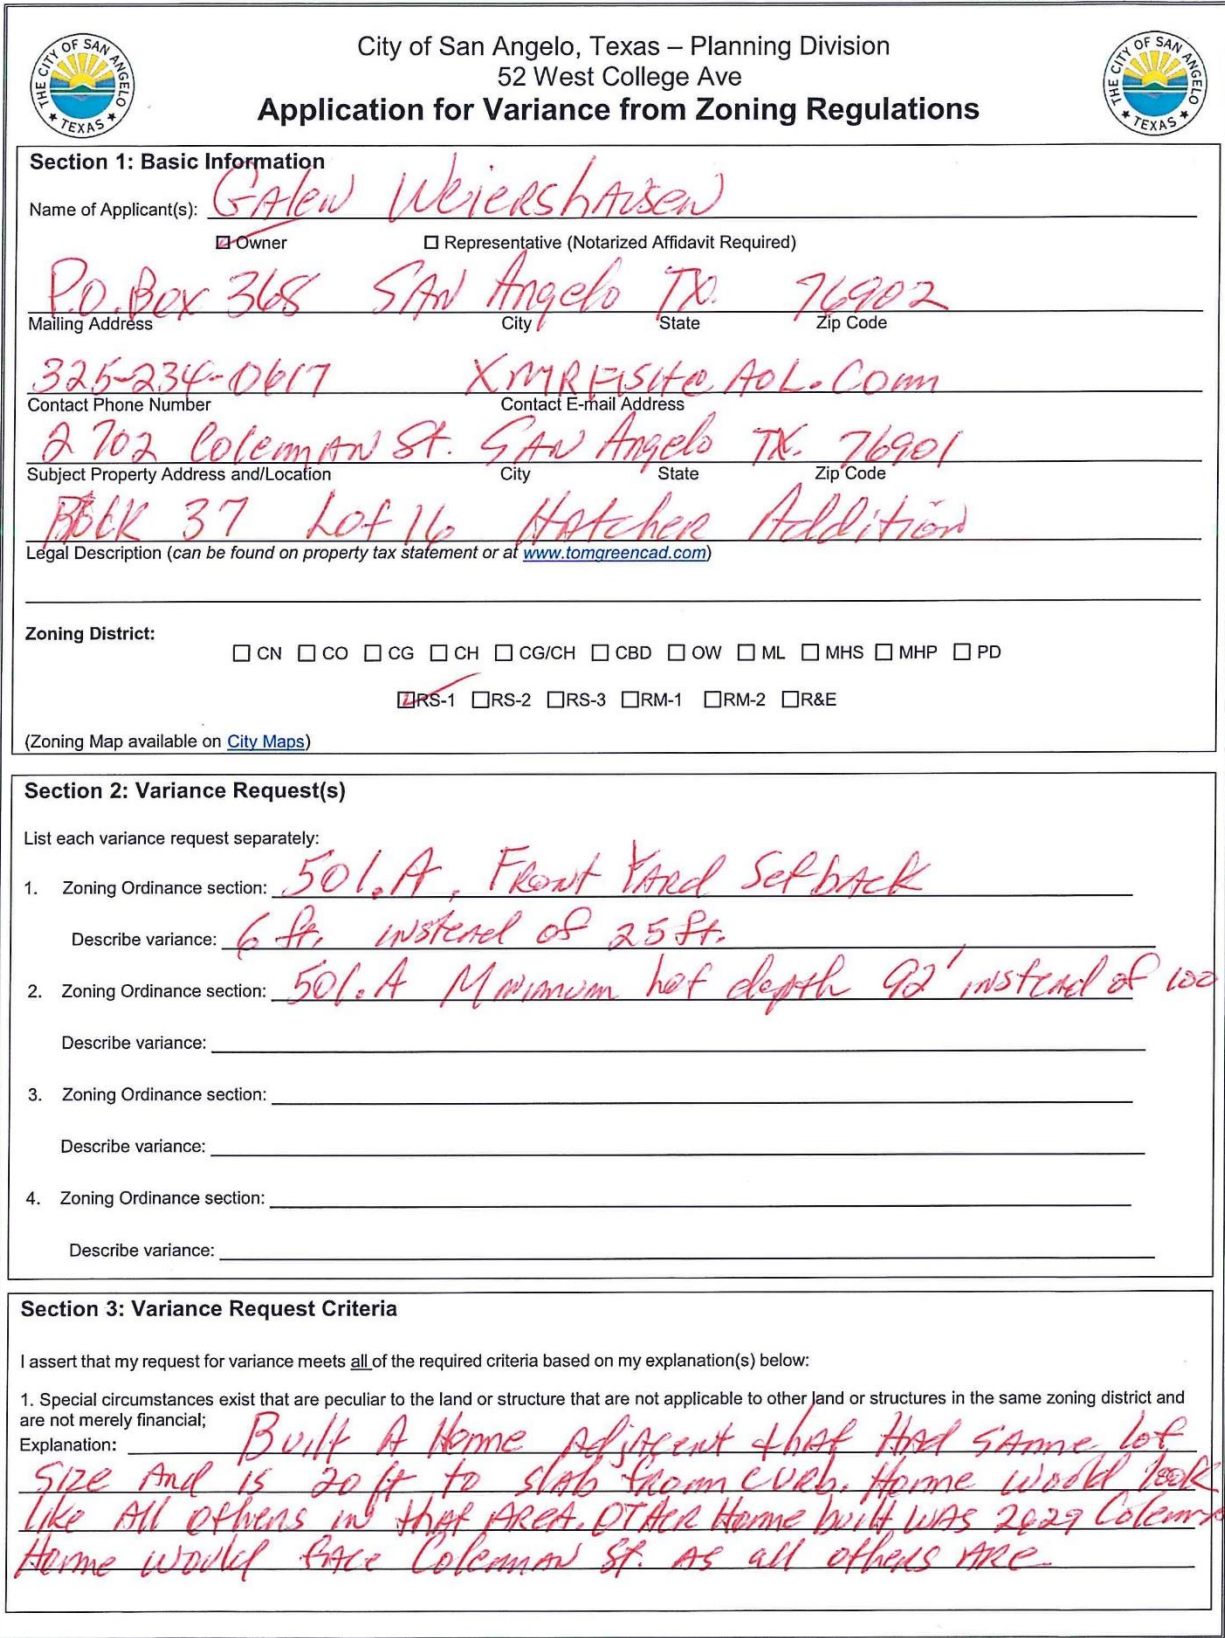 THE CITY OF SAN ANGELO
★ TEXAS ★
City of San Angelo, Texas – Planning Division
52 West College Ave
Application for Variance from Zoning Regulations
THE CITY OF SAN ANGELO
★ TEXAS ★
Section 1: Basic Information
Name of Applicant(s): GAlen WeiershAusen
☑ Owner ☐ Representative (Notarized Affidavit Required)
P.O. Box 368 SAN Angelo TX. 76902
Mailing Address City State Zip Code
325-234-0617 XMRFISH@AOL.Com
Contact Phone Number Contact E-mail Address
2702 ColemAN St. SAN Angelo TX. 76901
Subject Property Address and/Location City State Zip Code
37 Lot 16 HAtcher Addition
Legal Description (can be found on property tax statement or at www.tomgreencad.com)
Zoning District:
☐ CN ☐ CO ☐ CG ☐ CH ☐ CG/CH ☐ CBD ☐ OW ☐ ML ☐ MHS ☐ MHP ☐ PD
☑RS-1 ☐RS-2 ☐RS-3 ☐RM-1 ☐RM-2 ☐R&E
(Zoning Map available on City Maps)
Section 2: Variance Request(s)
List each variance request separately:
1. Zoning Ordinance section: 501.A, Front YARd SetbAck
Describe variance: 6 ft. insteAd of 25 ft.
2. Zoning Ordinance section: 501.A Minimum Lot depth 92' insteAd of 100
Describe variance:
3. Zoning Ordinance section:
Describe variance:
4. Zoning Ordinance section:
Describe variance:
Section 3: Variance Request Criteria
I assert that my request for variance meets all of the required criteria based on my explanation(s) below:
1. Special circumstances exist that are peculiar to the land or structure that are not applicable to other land or structures in the same zoning district and
are not merely financial;
Explanation: Built A Home AdjAcent thAt HAd SAme lot
Size And is 20 ft to slAb from curb. Home would look
like All others in thAt AREA. OTHER Home built WAS 2629
Home would fAce ColemAN St. AS all others ARE